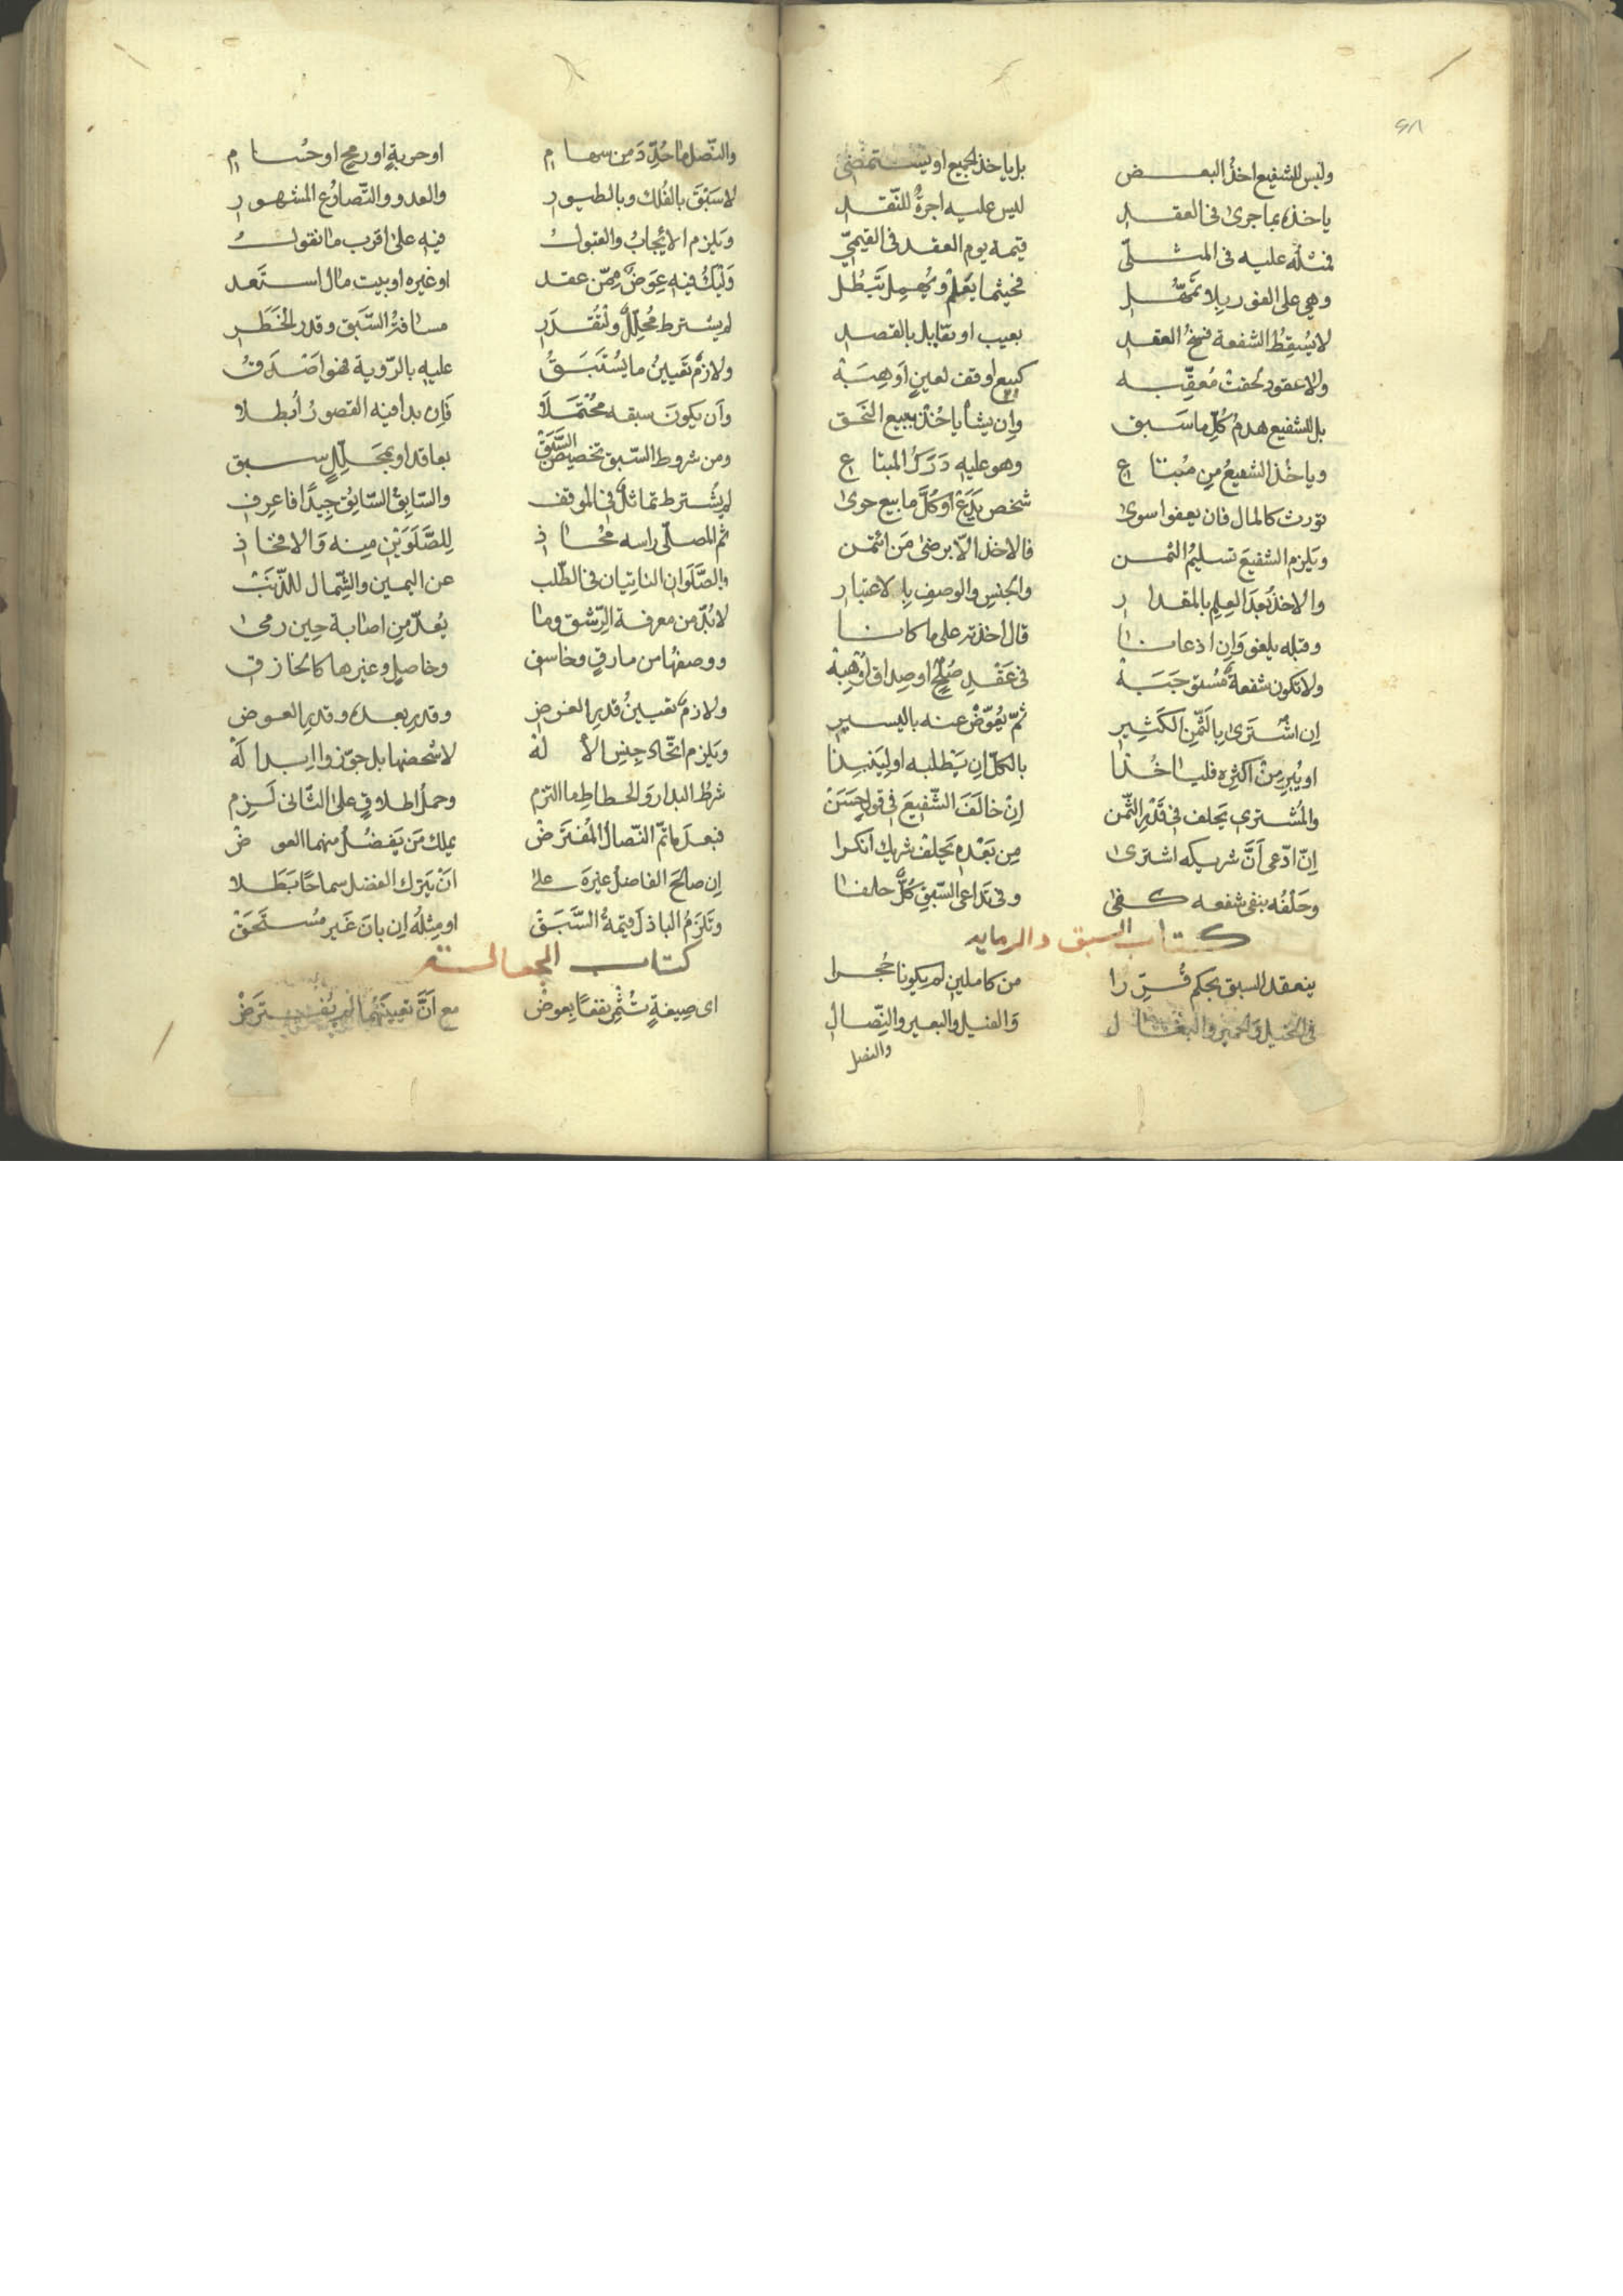 وليس للشفيع اخذ البعض بل ياخذ الجميع او يستمضى
ياخذه بما جرى فى العقد ليس عليه اجرةٌ للنّقد
فمثلُه عليه فى المثلىّ قيمة يوم العقد فى القيمىّ
وهى على الفور بلا تمهّل فحيثما يَعْلمْ ويُهمِل تبطُل
لا يُسقِطُ الشفعة فسخُ العقد بعيب او تقايل بالقصد
ولا عقود لحقتْ مُعقِّبه كبيع او وقف لعينٍ اَو هِبَهْ
بل للشفيع هدمُ كُلّ ما سَبق واِن يشأ ياخُذْ ببيع التحق
وياخُذ الشفيعُ مِن مُبتاع وهو عليه دَرَكُ المبتاع
تورث كالمال فان يعفوا سوى شخص يَدَعْ او كُلَّ ما بيع حوى
ويَلزم الشفيعَ تسليمُ الثمن فالاخذ الّا برضىٰ مَن ائتمن
والاخذ بَعدَ العِلمِ بالمقدار والجنسِ والوصفِ بِالاعتبار
وقبله يلغو وَاِن اذعانا قال اخذته على ما كانا
ولا تكون شفعةٌ مُستوجَبَهْ فى عَقْدِ صُلحٍ او صِداق اَوْ هِبَهْ
اِن اشْتَرىٰ بِالثّمنِ الكَثِيرِ ثمّ يُعَوِّضْ عنه باليسيرِ
او يُبرِ مِنْ اكثرِهِ فلياخُذا بالكلّ اِن يَطلبه او لِيَنبِذا
والمُشترى يَحلف فى قَدْرِ الثّمن اِنْ خالَفَ الشّفيعَ فى قولٍ حَسَنْ
اِنّ ادّعى اَنَّ شريكه اشترىٰ مِن بَعْدِه يَحلفْ شريك انكرا
وحَلْفُه بنفى شفعه كفىٰ وفى تداعى السّبقِ كُلٌّ حلفا
كتاب السبق والرمايه
ينعقد السبق بحكم قُرِّرا من كاملين لم يكونا حُجرا
فى الخيل والحمير والبغال وَالفيل والبعير والنِّصال
والنصل
والنّصل ما حُدِّدَ من سهام او حربةٍ او رمحٍ او حُسام
لا سَبْقَ بالفُلك وبالطيور والعدو والتّصارُع المشهور
ويَلزم الايُجابُ والقبولُ فيه علىٰ اقرب ما نقولُ
وَليَكُ فيه عِوَضٌ مِمّن عقد او غيره او بيت مال استَعد
لم يشترط مُحلِّلٌ ولْتُقدَر مسافةُ السَّبَق وقدر الخَطَر
ولازمٌ تَعيينُ ما يُسْتَبَقُ عليهِ بالرّوية فهو اَصْدَقُ
واَن يكونَ سبقه مُحْتَمَلَا فَاِن بدا فيه القصورُ اُبطلا
ومن شروط السّبق تخصيصُ السَّبَقْ بعاقد او بمحَلِّلٍ سبق
لم يُشترط تماثلٌ فى الموقف والسّابِقُ السّابِقُ جِيدًا فاعرِف
ثم المصلّى راسه محاذ لِلصَّلَوَيْنِ مِنه وَالافخاذ
والصَّلَوان الناتيان فى الطّلب عن اليمين والشِّمال للذّنَبْ
لا بُدّ من معرفة الرّشق وما يُعدّ مِن اصابة حِين رمىٰ
ووصفها من مارقٍ وخاسق وخاصلٍ وغيرها كالخازق
ولازمٌ تعيينُ قَدرِ الغرض وقدرِ بعده وقدرِ العوض
ويَلزم اتّحاد جِنسِ الألهْ لا شخصها بل جوّزوا ابدالَهْ
شرطُ البدار وَالحطاطِ ما التزم وحملُ اطلاقٍ علىٰ الثّانى لَزِم
فبعدَ ما تمّ النّضالُ المُفتَرَضْ يملك مَن يَفضُلُ منهما العوضْ
اِن صالحَ الفاضلُ غيرَه على انْ يَترك الفضل سماحًا بَطَلا
ويَلزمُ الباذلَ قيمةُ السَّبَقْ او مِثلُه اِن بانَ غَير مُستَحَقْ
كتاب الجعالة
اى صِيغةٍ تُثْمِر نفعًا بِعوضْ مع اَنَّ تعيينَهُما لم يُفترَضْ